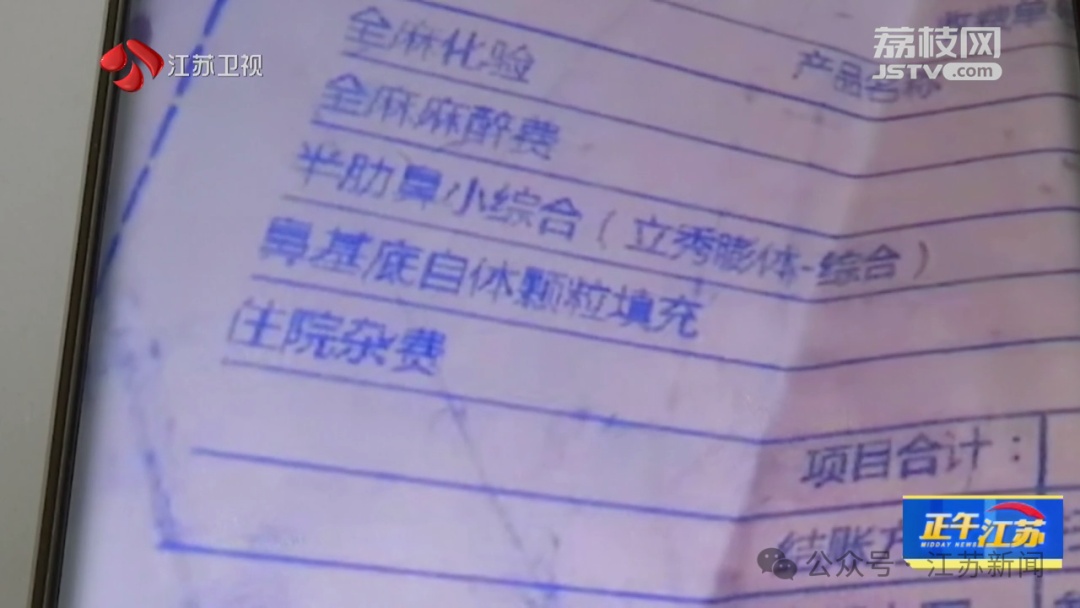 江苏卫视
荔枝网
JSTV.com
全麻化验
产品名称
全麻麻醉费
半肋鼻小综合（立秀膨体-综合）
鼻基底自体颗粒填充
住院杂费
项目合计：
结账
正午江苏
MIDDAY NEWS
公众号·江苏新闻